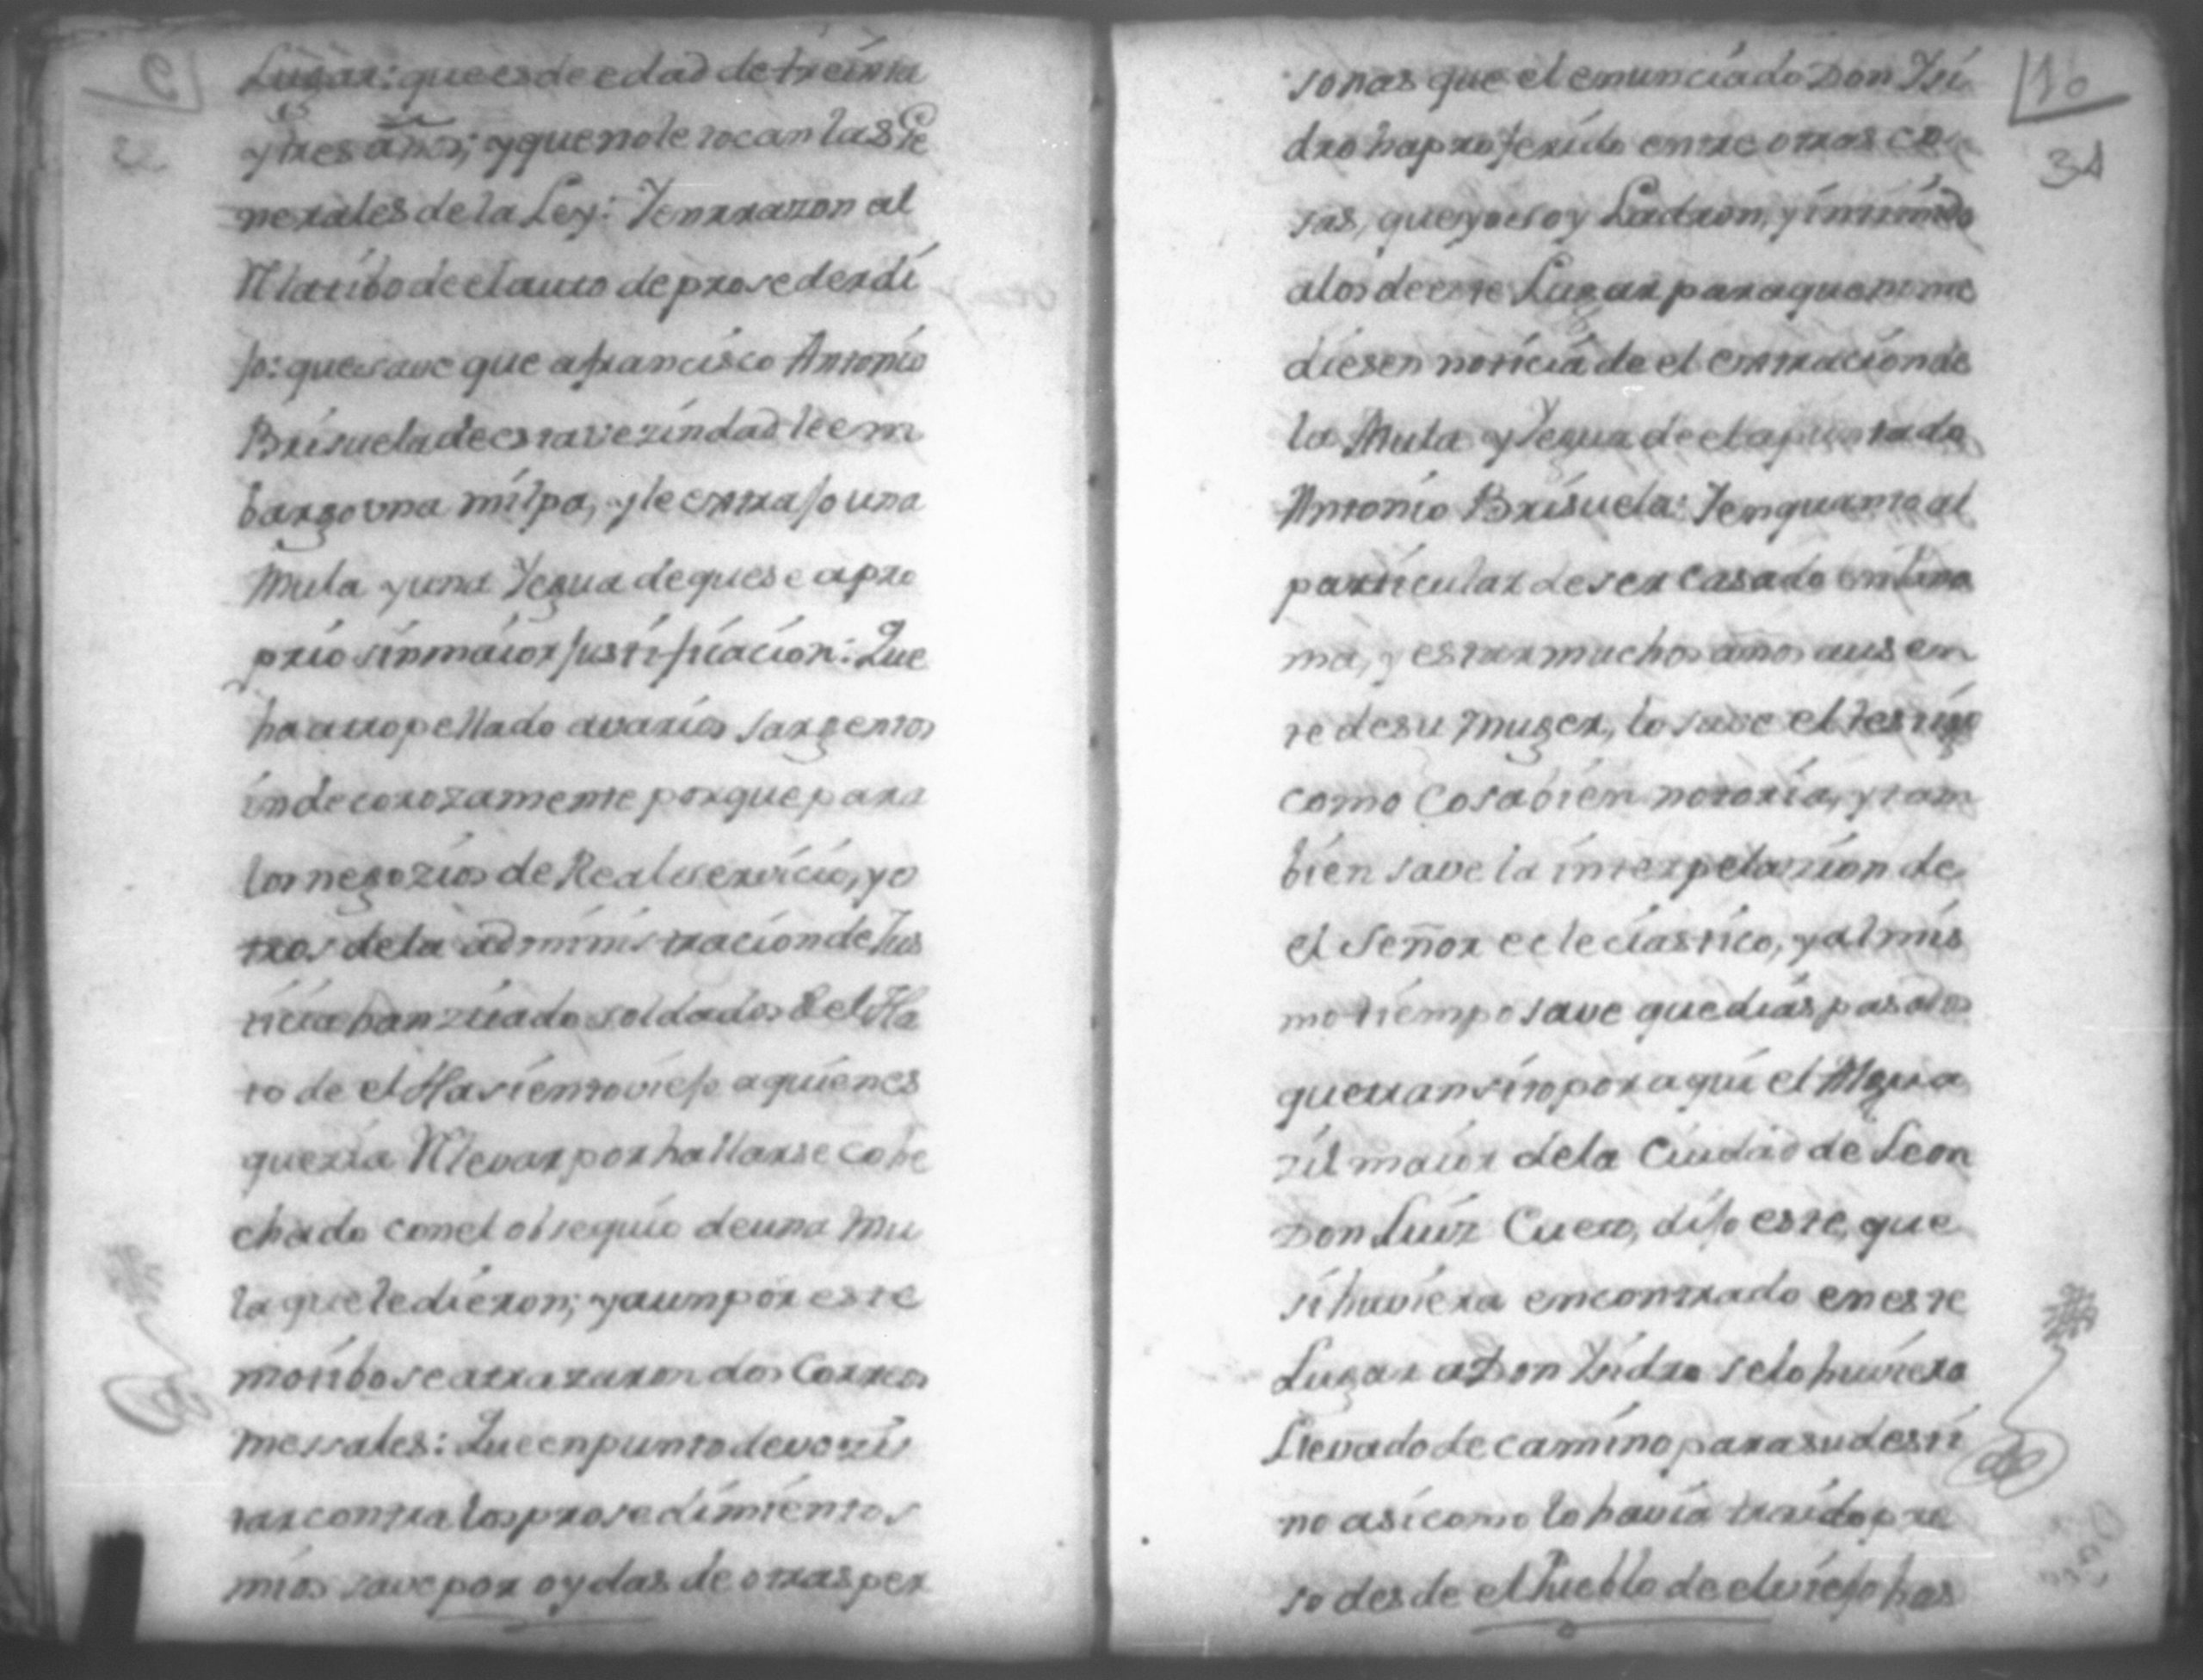 Lugar: que es de edad de treinta
y tres años; y que no le tocan las Ge
nerales de la Ley: Y enrrazon al
Motibo de el auto de proseder di
jo: que save que a francisco Antonio
Brisuela de esta vezindad le em
bargo una milpa, y le extrajo una
Mula y una Yegua de que se apro
prio sin maior justificacion: Que
ha atropellado a varios sargentos
indecorozamente porque para
los negozios de Real servicio, y o
tros de la administracion de Jus
ticia han ziado soldados del Ha
to de el Hasiento viejo a quienes
queria Llevar por hallarse cohe
chado con el obsequio de una Mu
la que le dieron; y aun por este
motibo se atrazaron dos Correos
mesales: Que en punto de vozi
rar contra los prosedimientos
mios save por oydas de otras per
9
10
34
sonas que el enunciado Don Ysi
dro ha proferido entre otras co
sas, que yo soy Ladron, y intimido
a los de este Lugar para que no me
diesen noticia de el extracion de
la Mula y Yegua de el apuntado
Antonio Brisuela: Y en quanto al
particular de ser Casado en
ma, y estar muchos años ausen
te de su Muger, lo save el testigo
como Cosa bien notoria, y tam
bien save la interpelazion de
el Señor ecleciastico, y al mis
mo tiempo save que dias pasados
que transito por aqui el Algua
zil maior de la Ciudad de Leon
Don Luiz Cuero, dijo este, que
si huviera encontrado en este
Lugar a Don Ysidro se lo huviera
Llevado de camino para su desti
no asi como lo havia traido pre
so desde el Pueblo de el viejo has